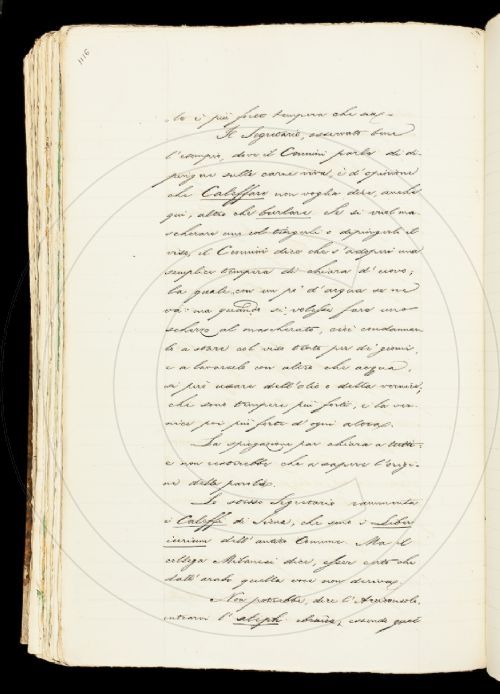 1116
le i più forte tempera che sap=
Il Segretario, osservato bene
l'esempio, dove il Cennini parla di di-
pingere sulla carne viva, è di opinione
che Caleffare non voglia dire, anche
qui, altro che burlare. Se si vuol ma-
scherare uno col tingerli o dipingerli il
viso, il Cennini dice che s'adoperi una
semplice tempera di chiara d'uovo;
la quale con un po' d'acqua se ne
va: ma quando si volesse fare uno
scherzo al mascherato, cioè condannar-
lo a stare col viso tinto per di' giorni,
e a lavarselo con altro che acqua,
si può usare dell'olio e della vernice,
che sono tempere più forti, e la ver-
nice poi più forte d'ogni altra.
La spiegazione par chiara a tutti:
e non resterebbe che a sapere l'origi-
ne della parola.
Lo stesso Segretario rammenta
i Caleffi di Siena, che sono i Libri
iurium dell'antico Comune. Ma il
collega Milanesi dice, esser certo che
dall'arabo quella voce non deriva.
Non potrebbe, dice l'Arciconsolo,
entrarvi l'aleph ebraico, essendo quel